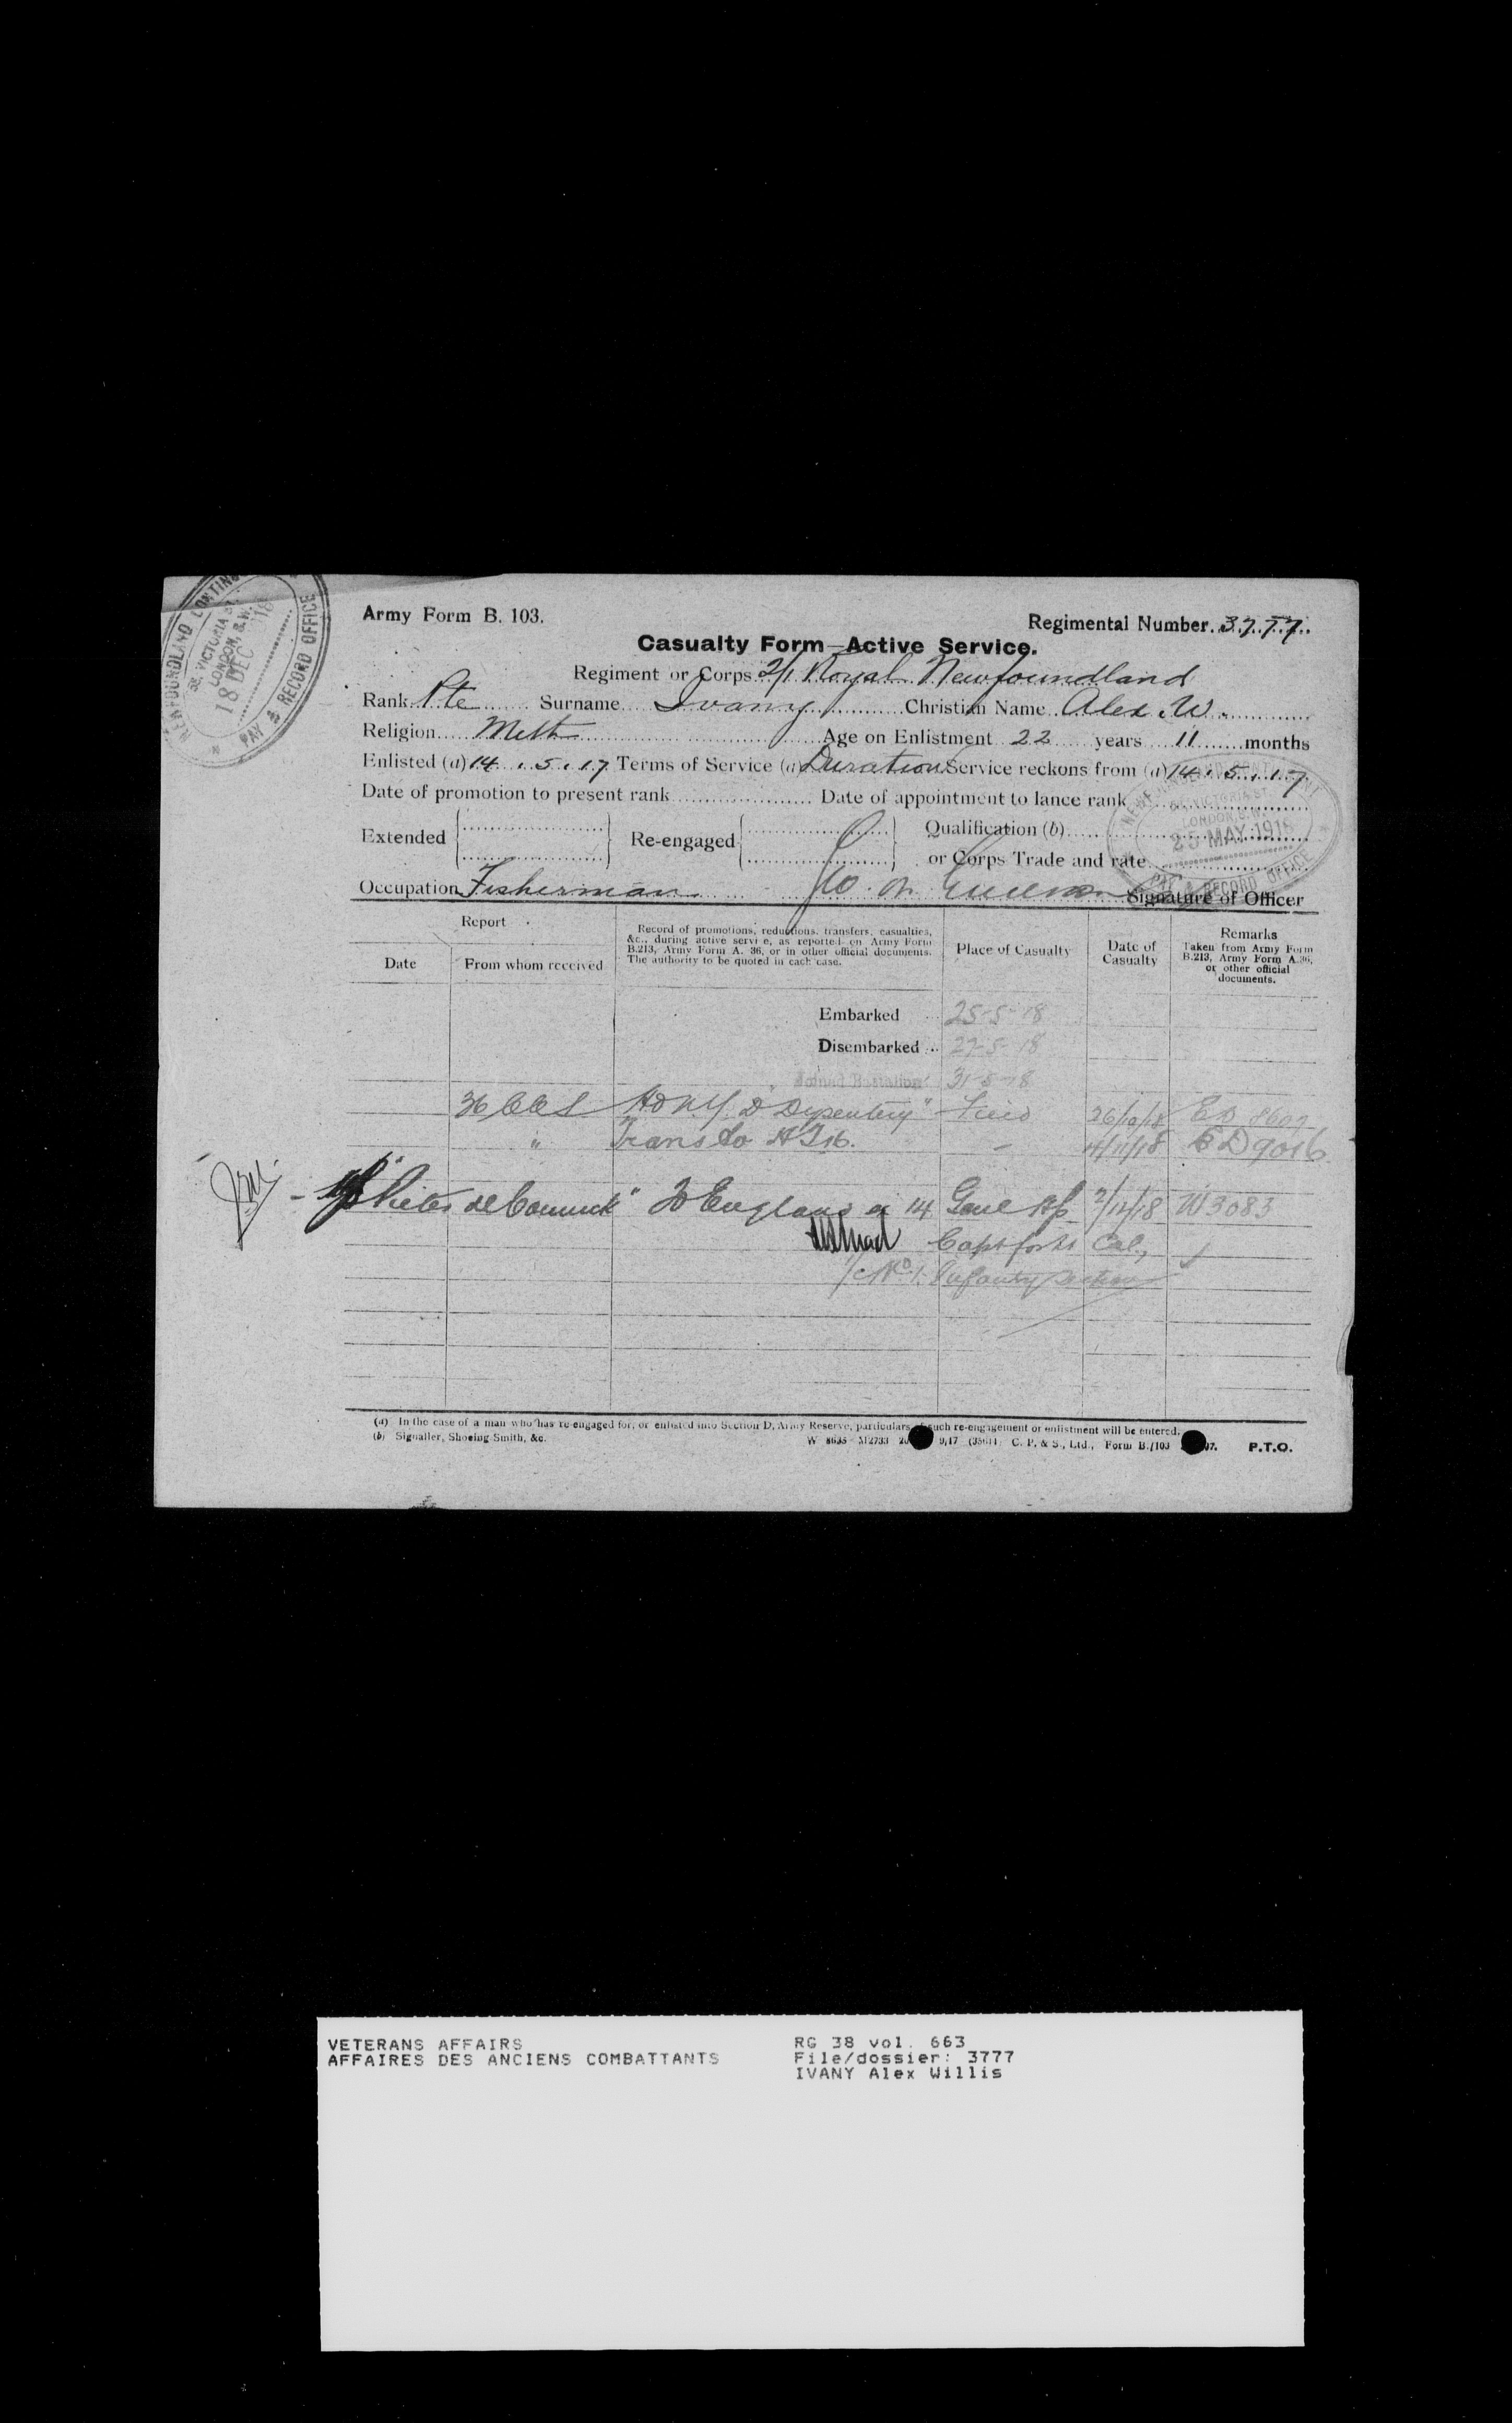 NEWFOUNDLAND CONTING
58, VICTORIA ST.
LONDON, S.W.
18 DEC 18
PAY & RECORD OFFICE
Army Form B. 103.
Regimental Number 3777
Casualty Form—Active Service.
Regiment or Corps 2/1 Royal Newfoundland
Rank Pte Surname Ivany Christian Name Alex. W.
Religion Meth Age on Enlistment 22 years 11 months
Enlisted (a) 14.5.17 Terms of Service (a) Duration Service reckons from (a) 14.5.17
Date of promotion to present rank Date of appointment to lance rank
Extended Re-engaged Qualification (b)
or Corps Trade and rate
LONDON, S.W.
25 MAY 1918
PAY & RECORD OFFICE
Occupation Fisherman Signature of Officer
Report
Date From whom received
Record of promotions, reductions, transfers, casualties, &c., during active service, as reported on Army Form B.213, Army Form A. 36, or in other official documents. The authority to be quoted in each case.
Place of Casualty
Date of Casualty
Remarks
Taken from Army Form B.213, Army Form A.36, or other official documents.
Embarked 25-5-18
Disembarked 27-5-18
Joined Battalion 31-5-18
36 CCS "Dysentery" Field 26/10/18 ED 8607
" Trans to AT16. - 4/11/18 ED9016
To England 14 Genl 2/12/18 W3083
Capt for Lt Col.,
i/c No 1. Infantry Section
(a) In the case of a man who has re-engaged for, or enlisted into Section D, Army Reserve, particulars of such re-engagement or enlistment will be entered.
(b) Signaller, Shoeing Smith, &c.
W 8635 M2733 9/17 C. P. & S., Ltd., Form B./103 P.T.O.
VETERANS AFFAIRS
AFFAIRES DES ANCIENS COMBATTANTS
RG 38 vol. 663
File/dossier: 3777
IVANY Alex Willis